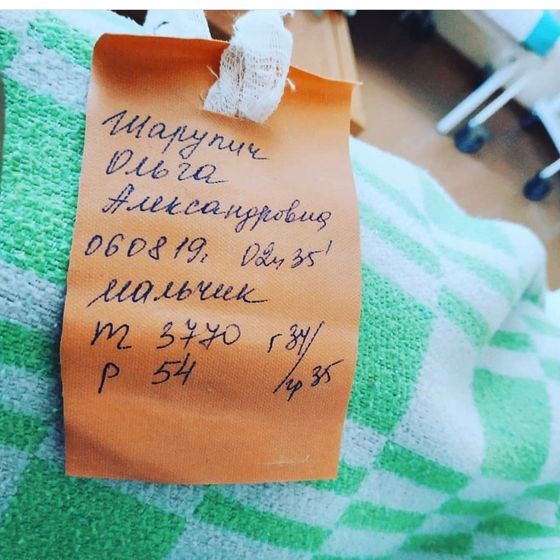 Шарупич
Ольга
Александровна
060819. 02ч35'
мальчик
m 3770 г34/
р 54 /гр35